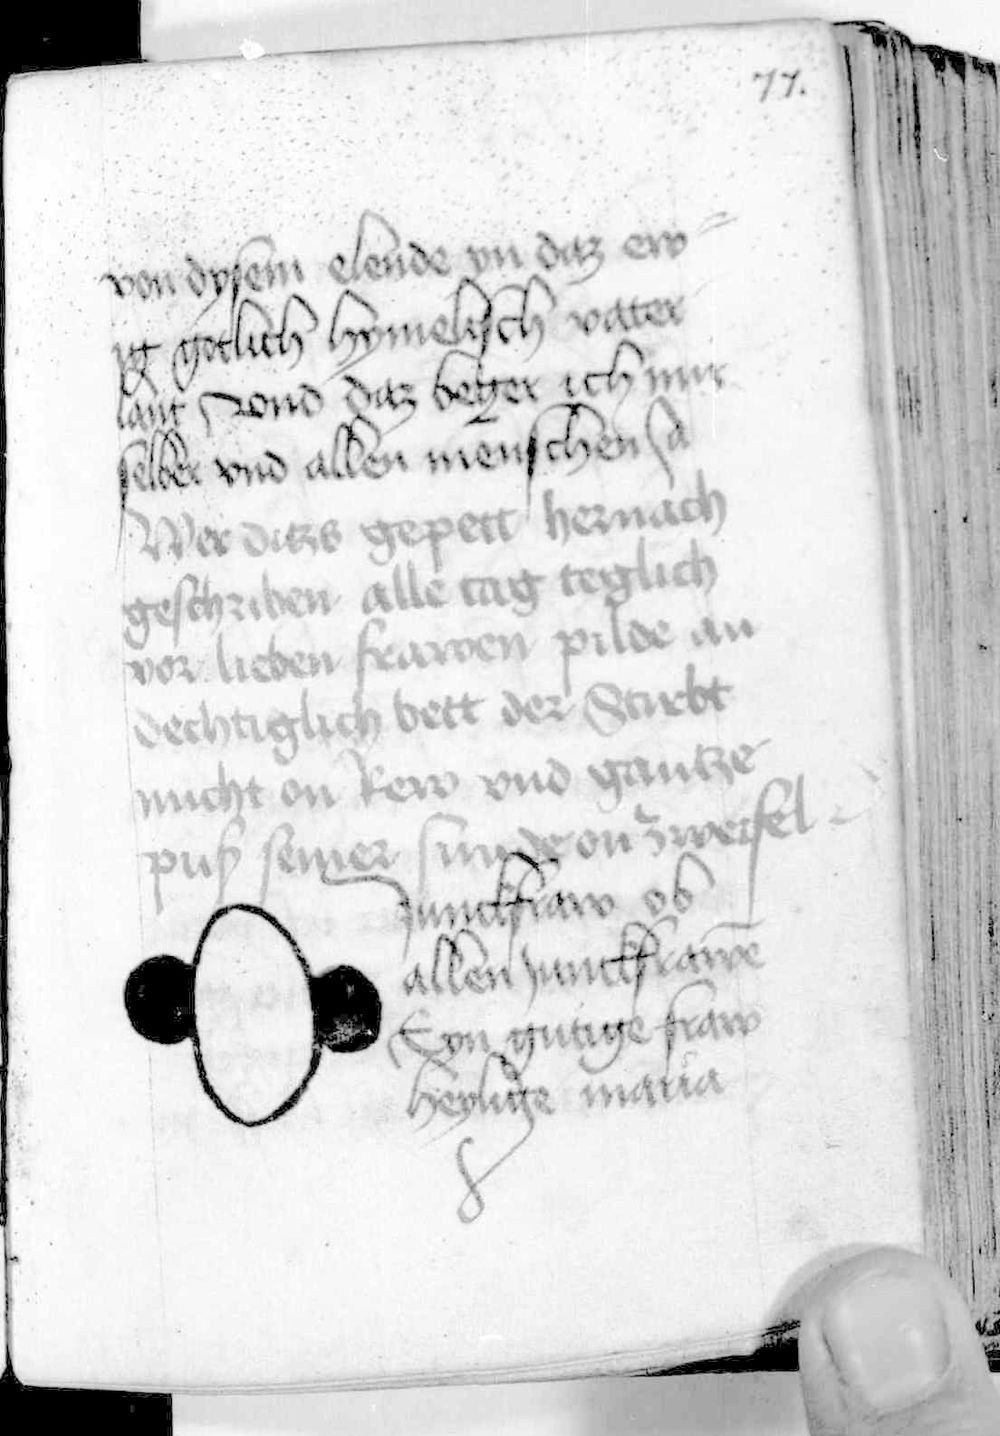 77.
von dysem elende yn daz ew⸗
ig gotlich hymelisch vater
lant vnd daz beger ich mir
selber vnd allen menschen A
Wer ditzs gepett hernach
geschriben alle tag teglich
vor lieben frawen pilde an
dechtiglich bett der Stirbt
nicht on Rew vnd gantze
puß seiner sunde on zweifel
Junckfraw ob
allen Junckfrawē
Eyn gutige fraw
heylige maria